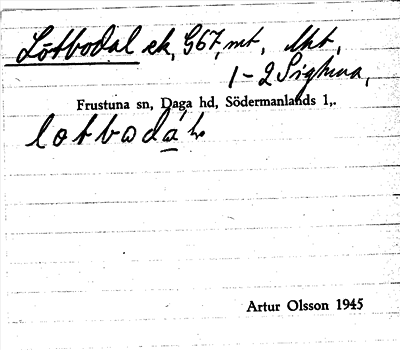 Lötbodal ek, G67, mt,
1-2 Sigtuna,
Frustuna sn, Daga hd, Södermanlands l,.
lotbodál
Artur Olsson 1945